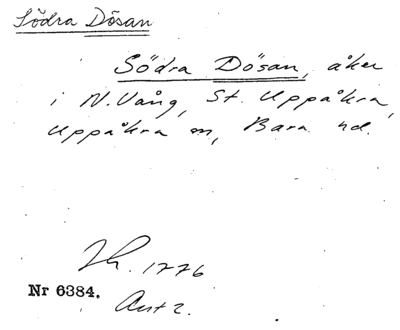 Södra Dösan
Södra Dösan, åker
i N. Vång, St. Uppåkra,
Uppåkra sn, Bara hd.
1776
Nr 6384.
Akt 2.